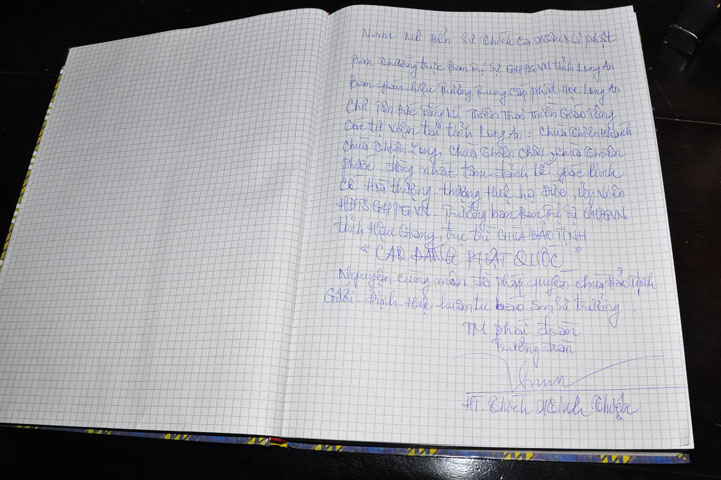 Nam Mô Bổn Sư Thích Ca Mâu Ni Phật
Ban Thường trực Ban Trị Sự GHPGVN tỉnh Long An
Ban Giám hiệu Trường Trung cấp Phật Học Long An
Chư Tôn Đức Tăng Ni Thiền Thai Thiền Giáo Tông
Các tự viện tại tỉnh Long An: Chùa Thiên Khánh
Chùa Thiên Long, Chùa Thiên Châu, Chùa Thiên
Phước đồng nhất tâm đảnh lễ giác linh
Cố Hòa thượng thượng Huệ hạ Đức, Ủy Viên
HĐTS GHPGVN Trưởng ban Ban Trị Sự GHPGVN
tỉnh Hậu Giang, trụ trì CHÙA BẢO TỊNH
"CAO ĐĂNG PHẬT QUỐC"
Nguyện cùng môn đồ pháp quyến chùa Bảo Tịnh
Giới Định Huệ huân tu báo ân Sư trưởng.
TM phái đoàn
Trưởng đoàn
HT. Thích Minh Thiện